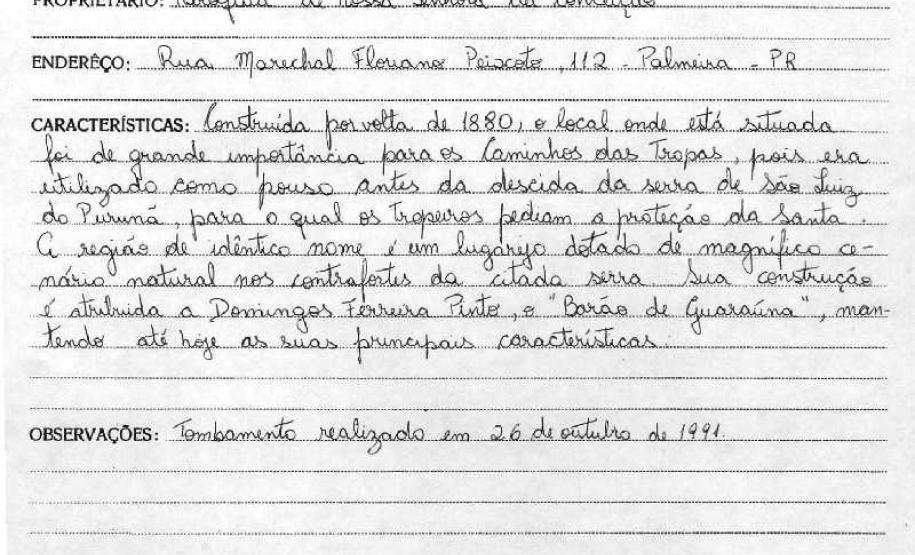 PROPRIETÁRIO: Paróquia de Nossa Senhora da Conceição
ENDERÊÇO: Rua Marechal Floriano Peixoto, 112 - Palmeira - PR
CARACTERÍSTICAS: Construída por volta de 1880, o local onde está situada
foi de grande importância para os Caminhos das Tropas, pois era
utilizado como pouso antes da descida da serra de São Luiz
do Purunã, para o qual os Tropeiros pediam a proteção da Santa.
A região de idêntico nome é um lugarejo dotado de magnífico ce-
nário natural nos contrafortes da citada serra. Sua construção
é atribuida a Domingos Ferreira Pinto, o "Barão de Guaraúna", man-
tendo até hoje as suas principais características.
OBSERVAÇÕES: Tombamento realizado em 26 de outubro de 1991.